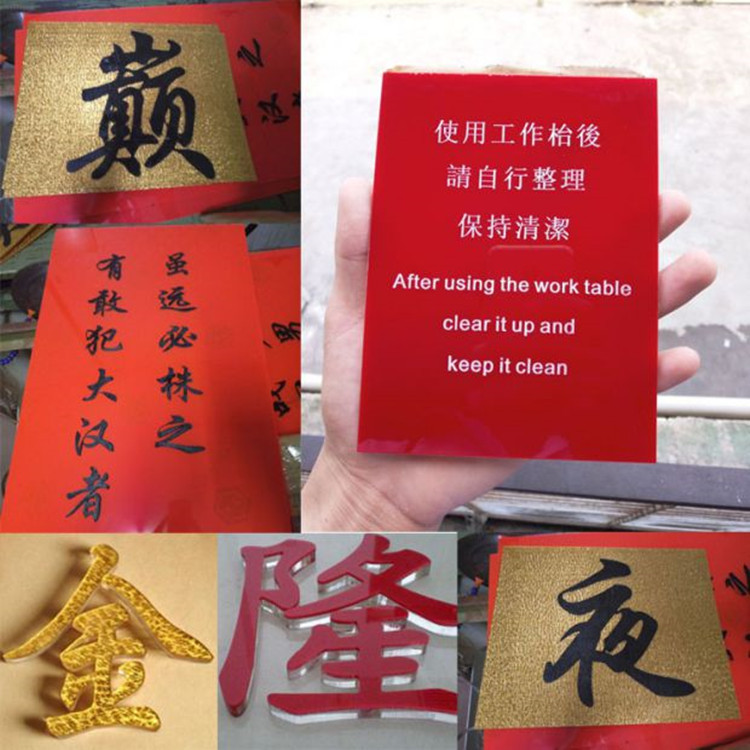 巅
之
汉
使用工作枱後
請自行整理
保持清潔
After using the work table
clear it up and
keep it clean
有敢犯大汉者
虽远必株之
男
金
隆
夜